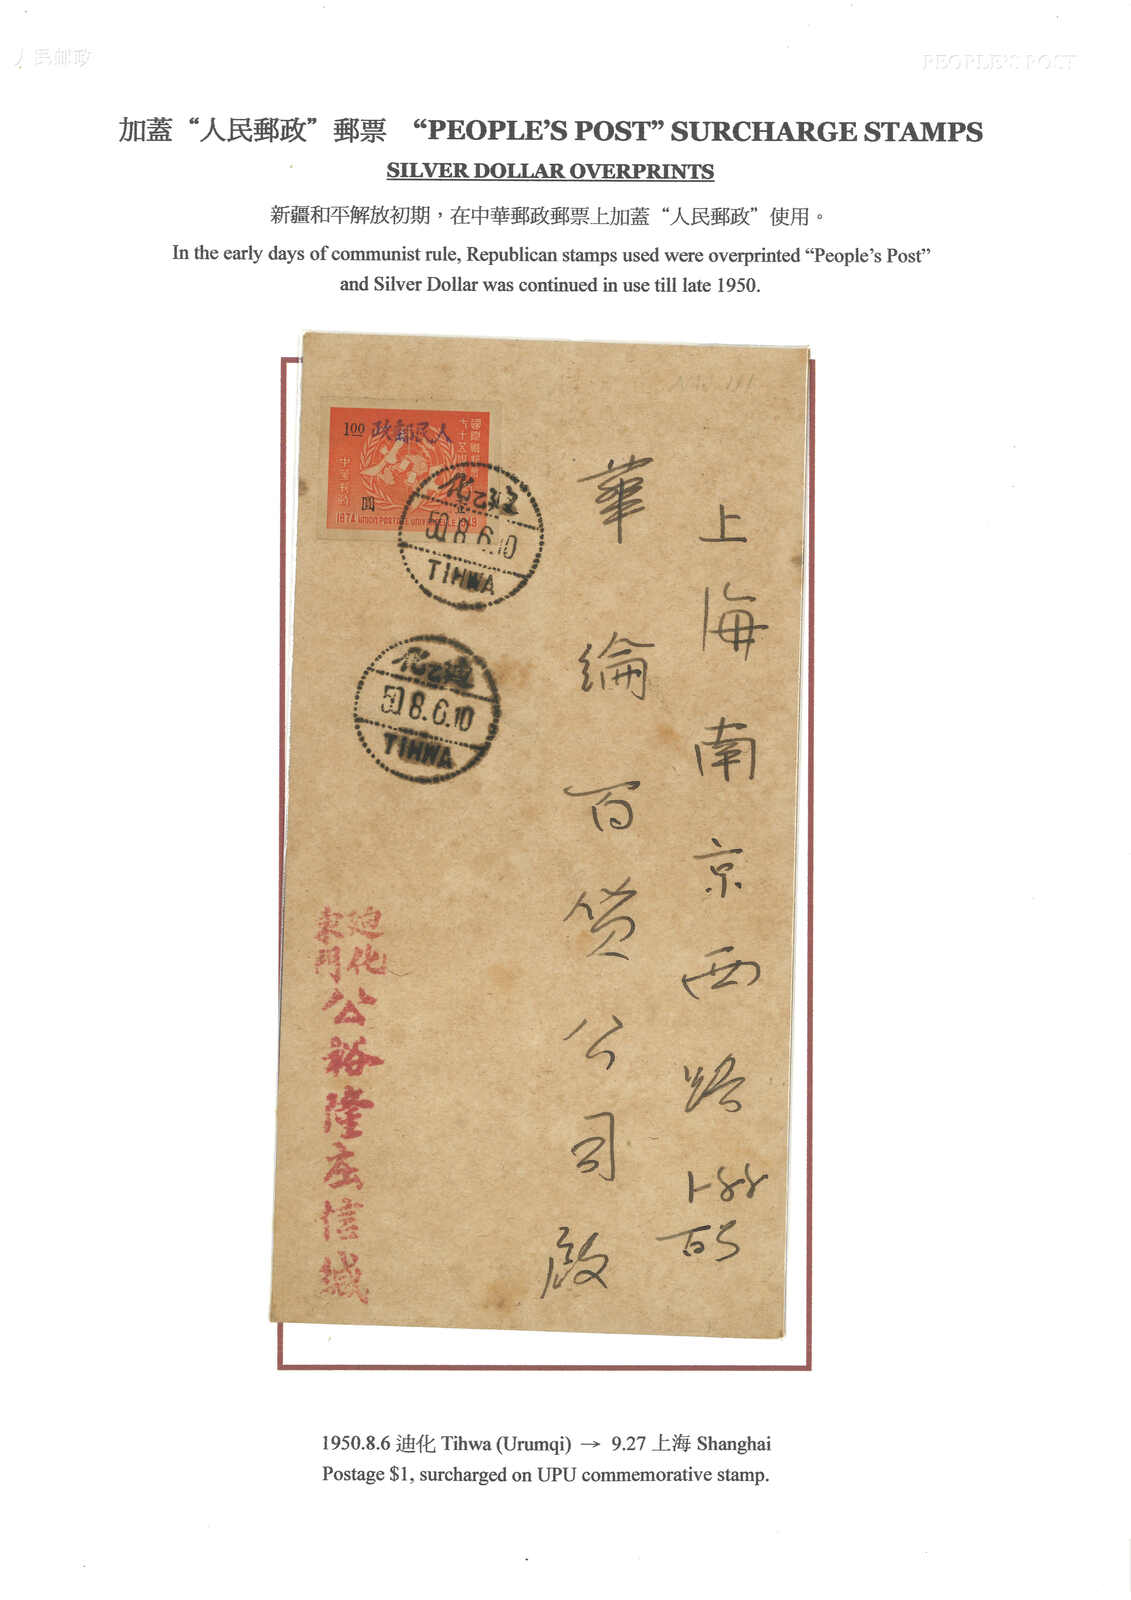 人民郵政
PEOPLE'S POST
加蓋“人民郵政”郵票 “PEOPLE'S POST” SURCHARGE STAMPS
SILVER DOLLAR OVERPRINTS
新疆和平解放初期，在中華郵政郵票上加蓋“人民郵政”使用。
In the early days of communist rule, Republican stamps used were overprinted “People's Post”
and Silver Dollar was continued in use till late 1950.
政郵民人
1.00
圓
中華郵政
1874 UNION POSTALE UNIVERSELLE 1949
50.8.6.10
TIHWA
化乙迪
50.8.6.10
TIHWA
上海南京西路
華綸百貨公司啟
迪化
東門
公裕隆庄信緘
1950.8.6 迪化 Tihwa (Urumqi) → 9.27 上海 Shanghai
Postage $1, surcharged on UPU commemorative stamp.